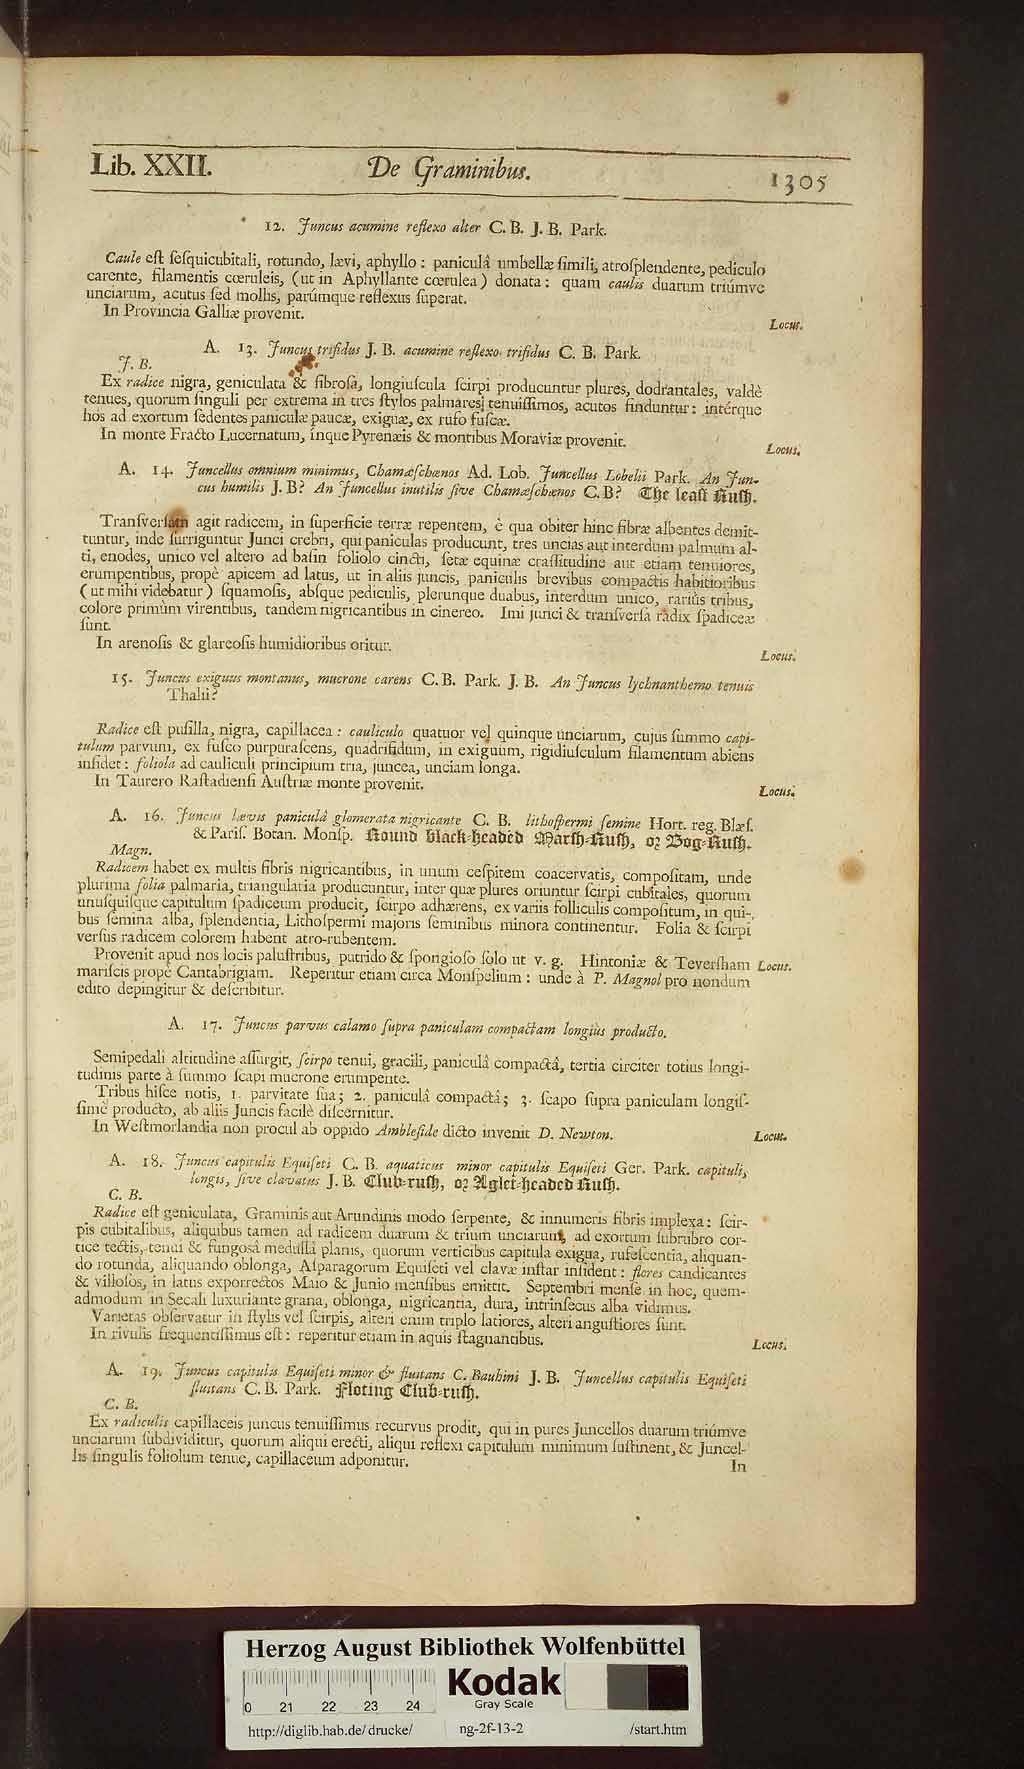 Lib. XXII. De Graminibus. 1305
12. Juncus acumine reflexo alter C. B. J. B. Park.
Caule eſt ſeſquicubitali, rotundo, lævi, aphyllo : paniculâ umbellæ ſimili, atroſplendente, pediculo
carente, filamentis cœruleis, (ut in Aphyllante cœrulea) donata : quam caulis duarum triúmve
unciarum, acutus ſed mollis, parúmque reflexus ſuperat.
In Provincia Galliæ provenit.
Locus.
A. 13. Juncus trifidus J. B. acumine reflexo trifidus C. B. Park.
J. B.
Ex radice nigra, geniculata & fibroſa, longiuſcula ſcirpi producuntur plures, dodrantales, valdè
tenues, quorum ſinguli per extrema in tres ſtylos palmares tenuiſſimos, acutos finduntur : intérque
hos ad exortum ſedentes paniculæ paucæ, exiguæ, ex rufo fuſcæ.
In monte Fracto Lucernatum, ínque Pyrenæis & montibus Moraviæ provenit.
Locus.
A. 14. Juncellus omnium minimus, Chamæſchœnos Ad. Lob. Juncellus Lobelii Park. An Jun-
cus humilis J. B? An Juncellus inutilis ſive Chamæſchœnos C. B? The leaſt Ruſh.
Tranſverſam agit radicem, in ſuperficie terræ repentem, è qua obiter hinc fibræ albentes demit-
tuntur, inde ſurriguntur Junci crebri, qui paniculas producunt, tres uncias aut interdum palmum al-
ti, enodes, unico vel altero ad baſin foliolo cincti, ſetæ equinæ craſſitudine aut etiam tenuiores,
erumpentibus, propè apicem ad latus, ut in aliis juncis, paniculis brevibus compactis habitioribus
(ut mihi videbatur) ſquamoſis, abſque pediculis, plerunque duabus, interdum unico, rariùs tribus,
colore primùm virentibus, tandem nigricantibus in cinereo. Imi junci & tranſverſa radix ſpadiceæ
ſunt.
In arenoſis & glareoſis humidioribus oritur.
Locus.
15. Juncus exiguus montanus, mucrone carens C. B. Park. J. B. An Juncus lychnanthemo tenuis
Thalii?
Radice eſt puſilla, nigra, capillacea : cauliculo quatuor vel quinque unciarum, cujus ſummo capi-
tulum parvum, ex fuſco purpuraſcens, quadrifidum, in exiguum, rigidiuſculum filamentum abiens
inſidet : foliola ad cauliculi principium tria, juncea, unciam longa.
In Taurero Raſtadienſi Auſtriæ monte provenit.
Locus.
A. 16. Juncus lævis paniculâ glomerata nigricante C. B. lithoſpermi ſemine Hort. reg. Blæſ.
& Pariſ. Botan. Monſp. Round black-headed Marſh-Ruſh, or Bog-Ruſh.
Magn.
Radicem habet ex multis fibris nigricantibus, in unum ceſpitem coacervatis, compoſitam, unde
plurima folia palmaria, triangularia producuntur, inter quæ plures oriuntur ſcirpi cubitales, quorum
unuſquiſque capitulum ſpadiceum producit, ſcirpo adhærens, ex variis folliculis compoſitum, in qui-
bus ſemina alba, ſplendentia, Lithoſpermi majoris ſeminibus minora continentur. Folia & ſcirpi
verſùs radicem colorem habent atro-rubentem.
Provenit apud nos locis paluſtribus, putrido & ſpongioſo ſolo ut v. g. Hintoniæ & Teverſham
mariſcis propè Cantabrigiam. Reperitur etiam circa Monſpelium : unde à P. Magnol pro nondum
edito depingitur & deſcribitur.
Locus.
A. 17. Juncus parvus calamo ſupra paniculam compactam longiùs producto.
Semipedali altitudine aſſurgit, ſcirpo tenui, gracili, paniculâ compactâ, tertia circiter totius longi-
tudinis parte à ſummo ſcapi mucrone erumpente.
Tribus hiſce notis, 1. parvitate ſua; 2. paniculâ compactâ; 3. ſcapo ſupra paniculam longiſ-
ſimè producto, ab aliis Juncis facilè diſcernitur.
In Weſtmorlandia non procul ab oppido Ambleſide dicto invenit D. Newton.
Locus.
A. 18. Juncus capitulis Equiſeti C. B. aquaticus minor capitulis Equiſeti Ger. Park. capituli,
longis, ſive clavatus J. B. Club-ruſh, or Aglet-headed Ruſh.
C. B.
Radice eſt geniculata, Graminis aut Arundinis modo ſerpente, & innumeris fibris implexa : ſcir-
pis cubitalibus, aliquibus tamen ad radicem duarum & trium unciarum, ad exortum ſubrubro cor-
tice tectis, tenui & fungosâ medullâ planis, quorum verticibus capitula exigua, rufeſcentia, aliquan-
do rotunda, aliquando oblonga, Aſparagorum Equiſeti vel clavæ inſtar inſident : flores candicantes
& villoſos, in latus exporrectos Maio & Junio menſibus emittit. Septembri menſe in hoc, quem-
admodum in Secali luxuriante grana, oblonga, nigricantia, dura, intrinſecus alba vidimus.
Varietas obſervatur in ſtylis vel ſcirpis, alteri enim triplo latiores, alteri anguſtiores ſunt.
In rivulis frequentiſſimus eſt : reperitur etiam in aquis ſtagnantibus.
Locus.
A. 19. Juncus capitulis Equiſeti minor & fluitans C. Bauhini J. B. Juncellus capitulis Equiſeti
fluitans C. B. Park. Floting Club-ruſh.
C. B.
Ex radiculis capillaceis juncus tenuiſſimus recurvus prodit, qui in pures Juncellos duarum triúmve
unciarum ſubdividitur, quorum aliqui erecti, aliqui reflexi capitulum minimum ſuſtinent, & Juncel-
lis ſingulis foliolum tenue, capillaceum adponitur.
In
Herzog August Bibliothek Wolfenbüttel
0 21 22 23 24
Kodak
Gray Scale
http://diglib.hab.de/drucke/ ng-2f-13-2 /start.htm